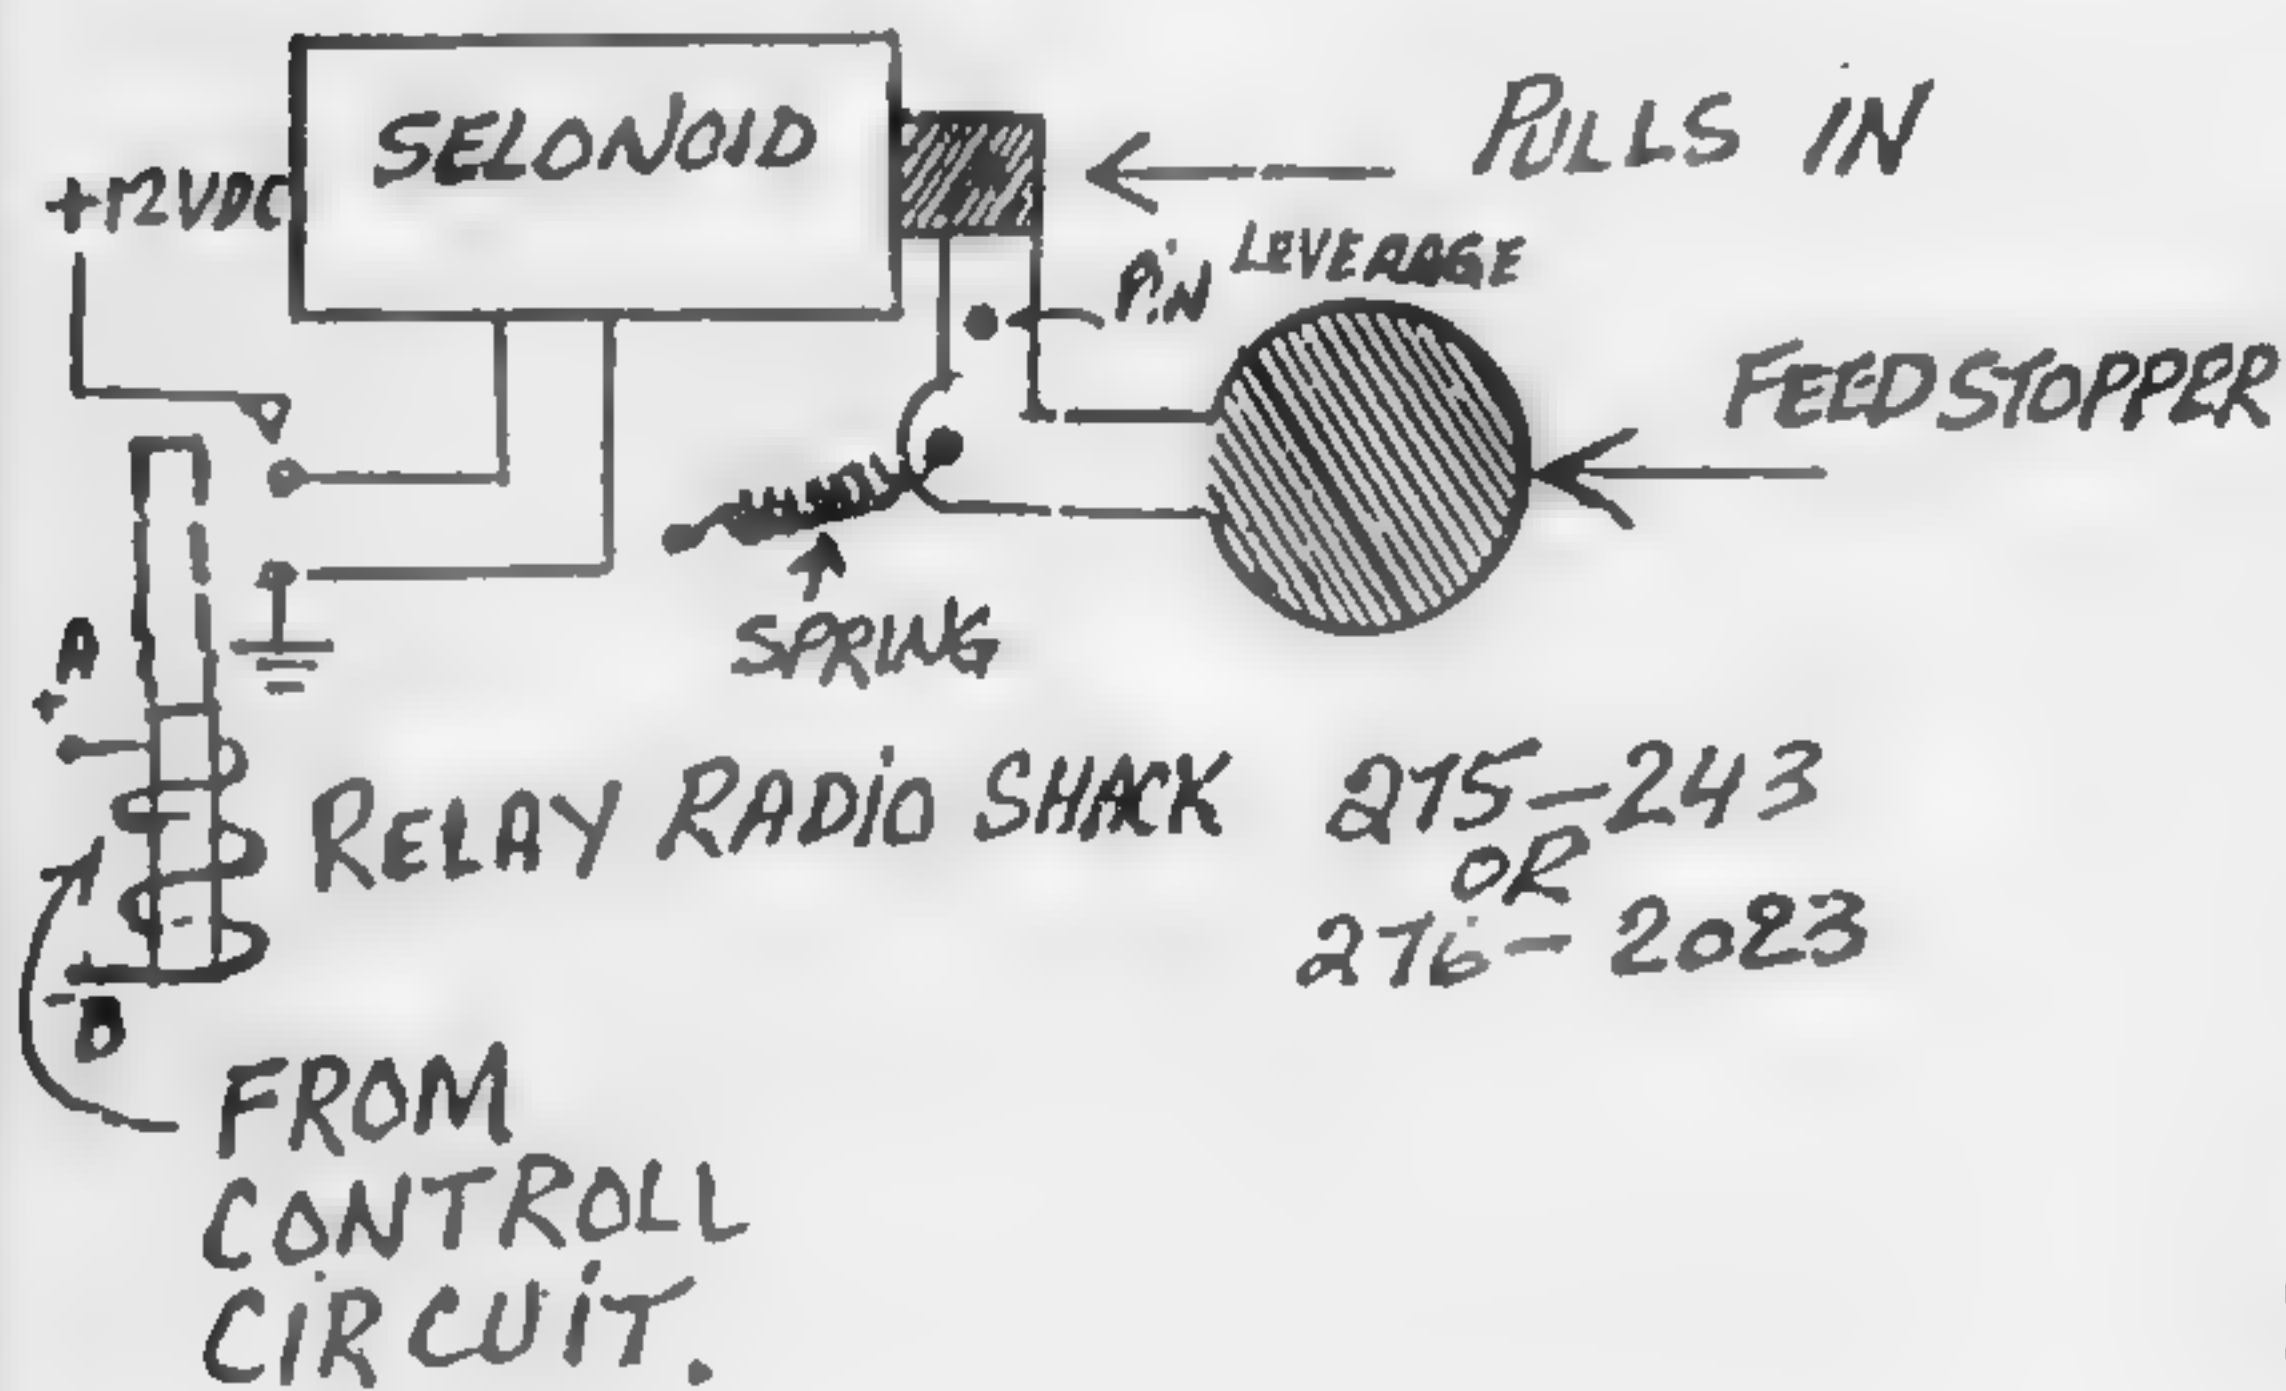 SELONOID
PULLS IN
+12VDC
PIN LEVERAGE
FEED STOPPER
SPRING
A
+
RELAY RADIO SHACK 275-243
OR
276-2023
-B
FROM
CONTROLL
CIRCUIT.